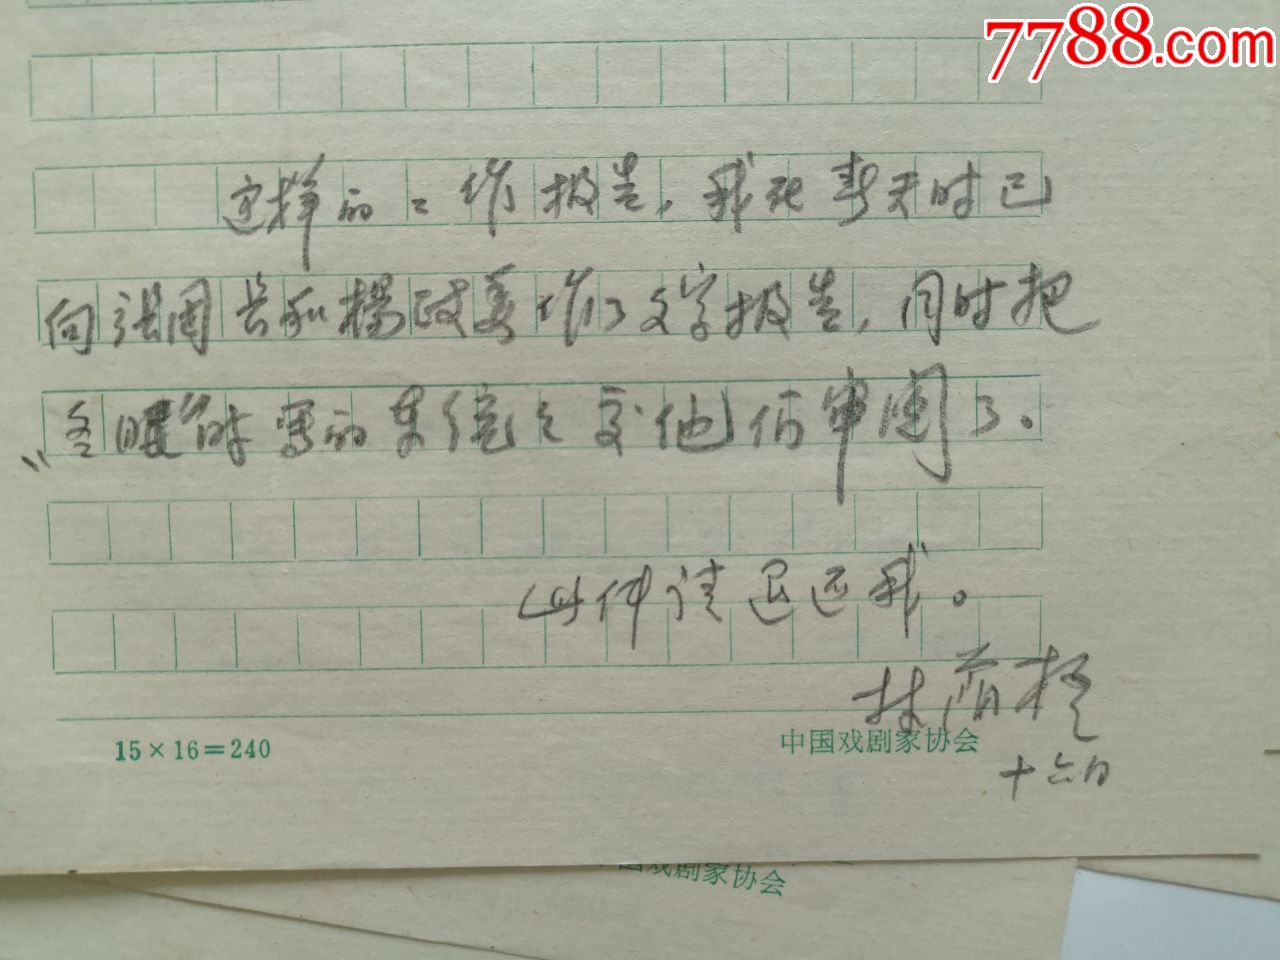 7788.com
这样的工作报告，我在春天时已
向张团长和楊政委作了文字报告，同时把
冬時写的交他们审阅了。
此件请退还我。
林荫梧
十六日
15×16=240
中国戏剧家协会
中国戏剧家协会